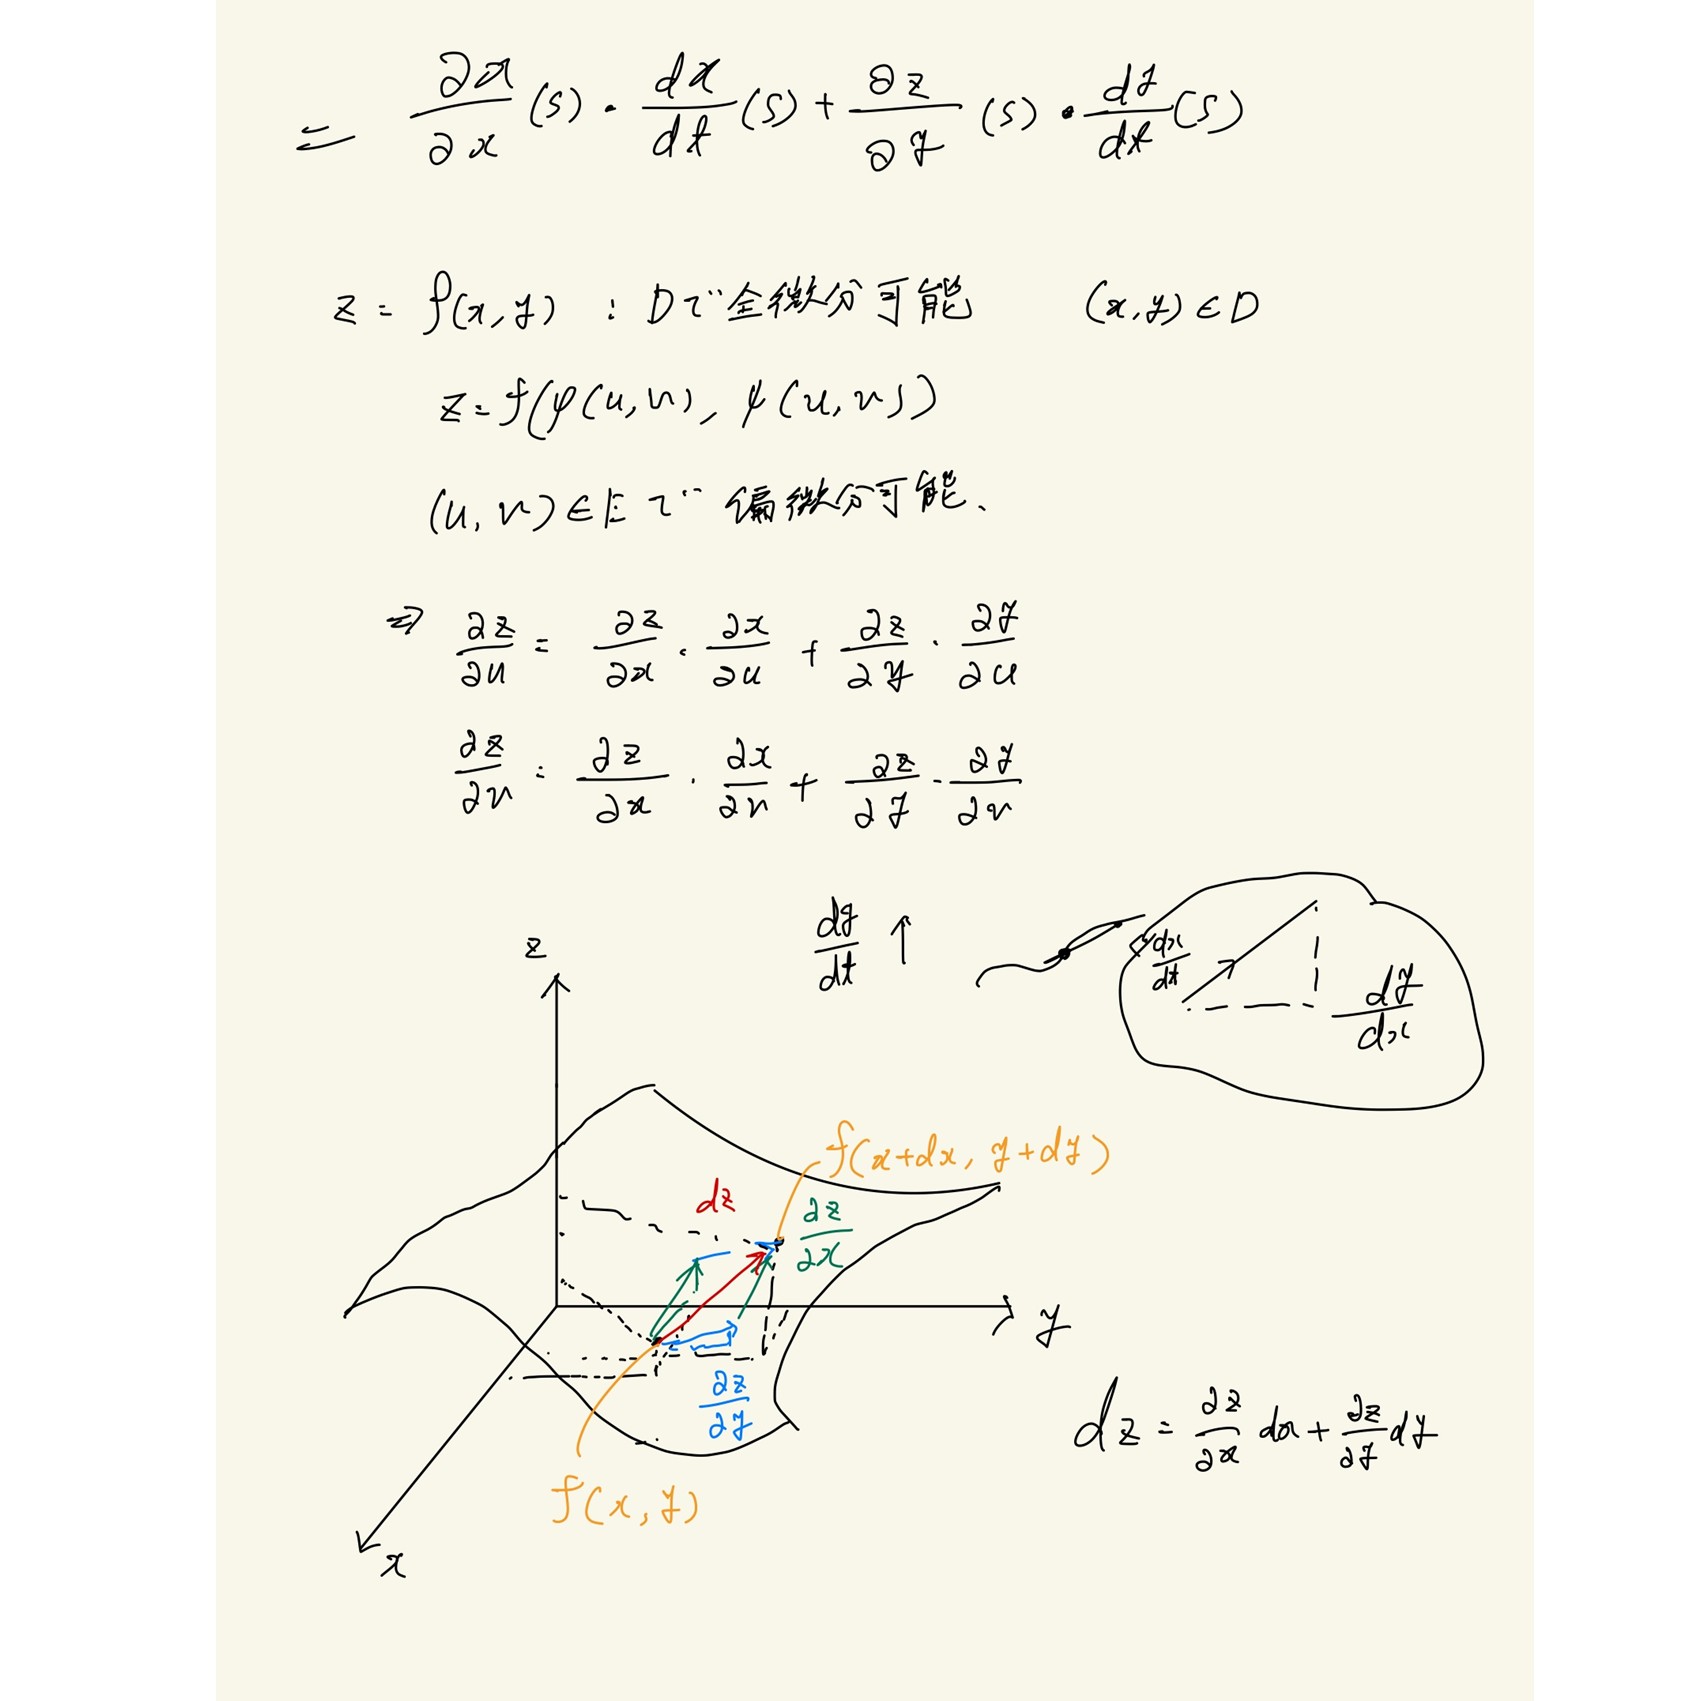 = ∂x/∂x (s) · dx/dt (s) + ∂z/∂y (s) · dy/dt (s)
z = f(x, y) : Dで全微分可能 (x, y) ∈ D
z = f(φ(u, v), ψ(u, v))
(u, v) ∈ E で 偏微分可能、
⇒ ∂z/∂u = ∂z/∂x · ∂x/∂u + ∂z/∂y · ∂y/∂u
∂z/∂v = ∂z/∂x · ∂x/∂v + ∂z/∂y · ∂y/∂v
dy/dt ↑
dx/dt
dy/dx
z
f(x+dx, y+dy)
dz
∂z/∂x
y
∂z/∂y
dz = ∂z/∂x dx + ∂z/∂y dy
f(x, y)
x